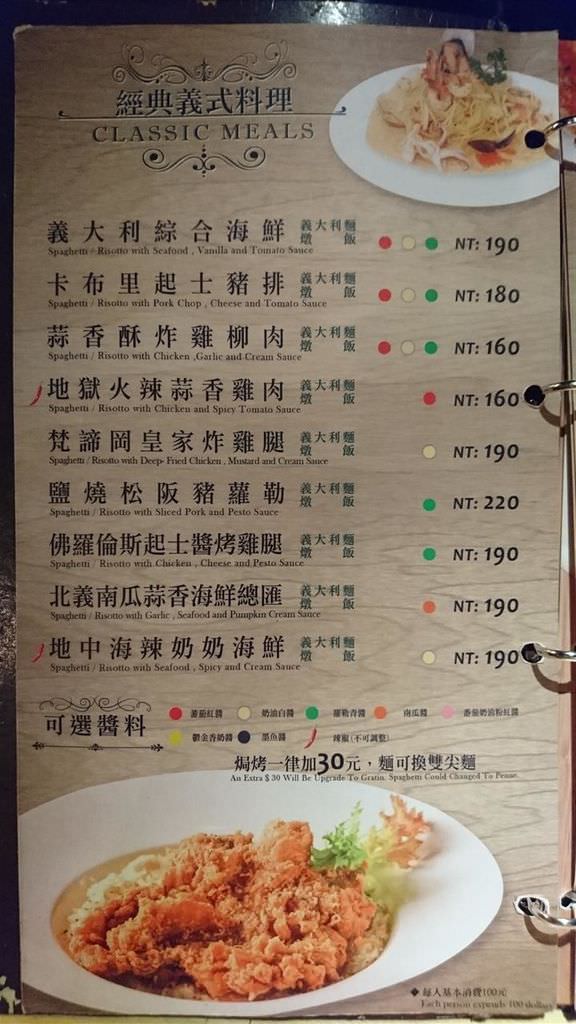 經典義式料理
CLASSIC MEALS
義大利綜合海鮮 義大利麵 燉飯 NT: 190
Spaghetti / Risotto with Seafood , Vanilla and Tomato Sauce
卡布里起士豬排 義大利麵 燉飯 NT: 180
Spaghetti / Risotto with Pork Chop , Cheese and Tomato Sauce
蒜香酥炸雞柳肉 義大利麵 燉飯 NT: 160
Spaghetti / Risotto with Chicken ,Garlic and Cream Sauce
地獄火辣蒜香雞肉 義大利麵 燉飯 NT: 160
Spaghetti / Risotto with Chicken and Spicy Tomato Sauce
梵諦岡皇家炸雞腿 義大利麵 燉飯 NT: 190
Spaghetti / Risotto with Deep- Fried Chicken , Mustard and Cream Sauce
鹽燒松阪豬蘿勒 義大利麵 燉飯 NT: 220
Spaghetti / Risotto with Sliced Pork and Pesto Sauce
佛羅倫斯起士醬烤雞腿 義大利麵 燉飯 NT: 190
Spaghetti / Risotto with Chicken , Cheese and Pesto Sauce
北義南瓜蒜香海鮮總匯 義大利麵 燉飯 NT: 190
Spaghetti / Risotto with Garlic , Seafood and Pumpkin Cream Sauce
地中海辣奶奶海鮮 義大利麵 燉飯 NT: 190
Spaghetti / Risotto with Seafood , Spicy and Cream Sauce
可選醬料
蕃茄紅醬 奶油白醬 羅勒青醬 南瓜醬 蕃茄奶油粉紅醬
鬱金香奶醬 墨魚醬 辣椒(不可調整)
焗烤一律加30元，麵可換雙尖麵
An Extra $ 30 Will Be Upgrade To Gratin. Spaghetti Could Changed To Penne.
◆ 每人基本消費100元
Each person expends 100 dollars